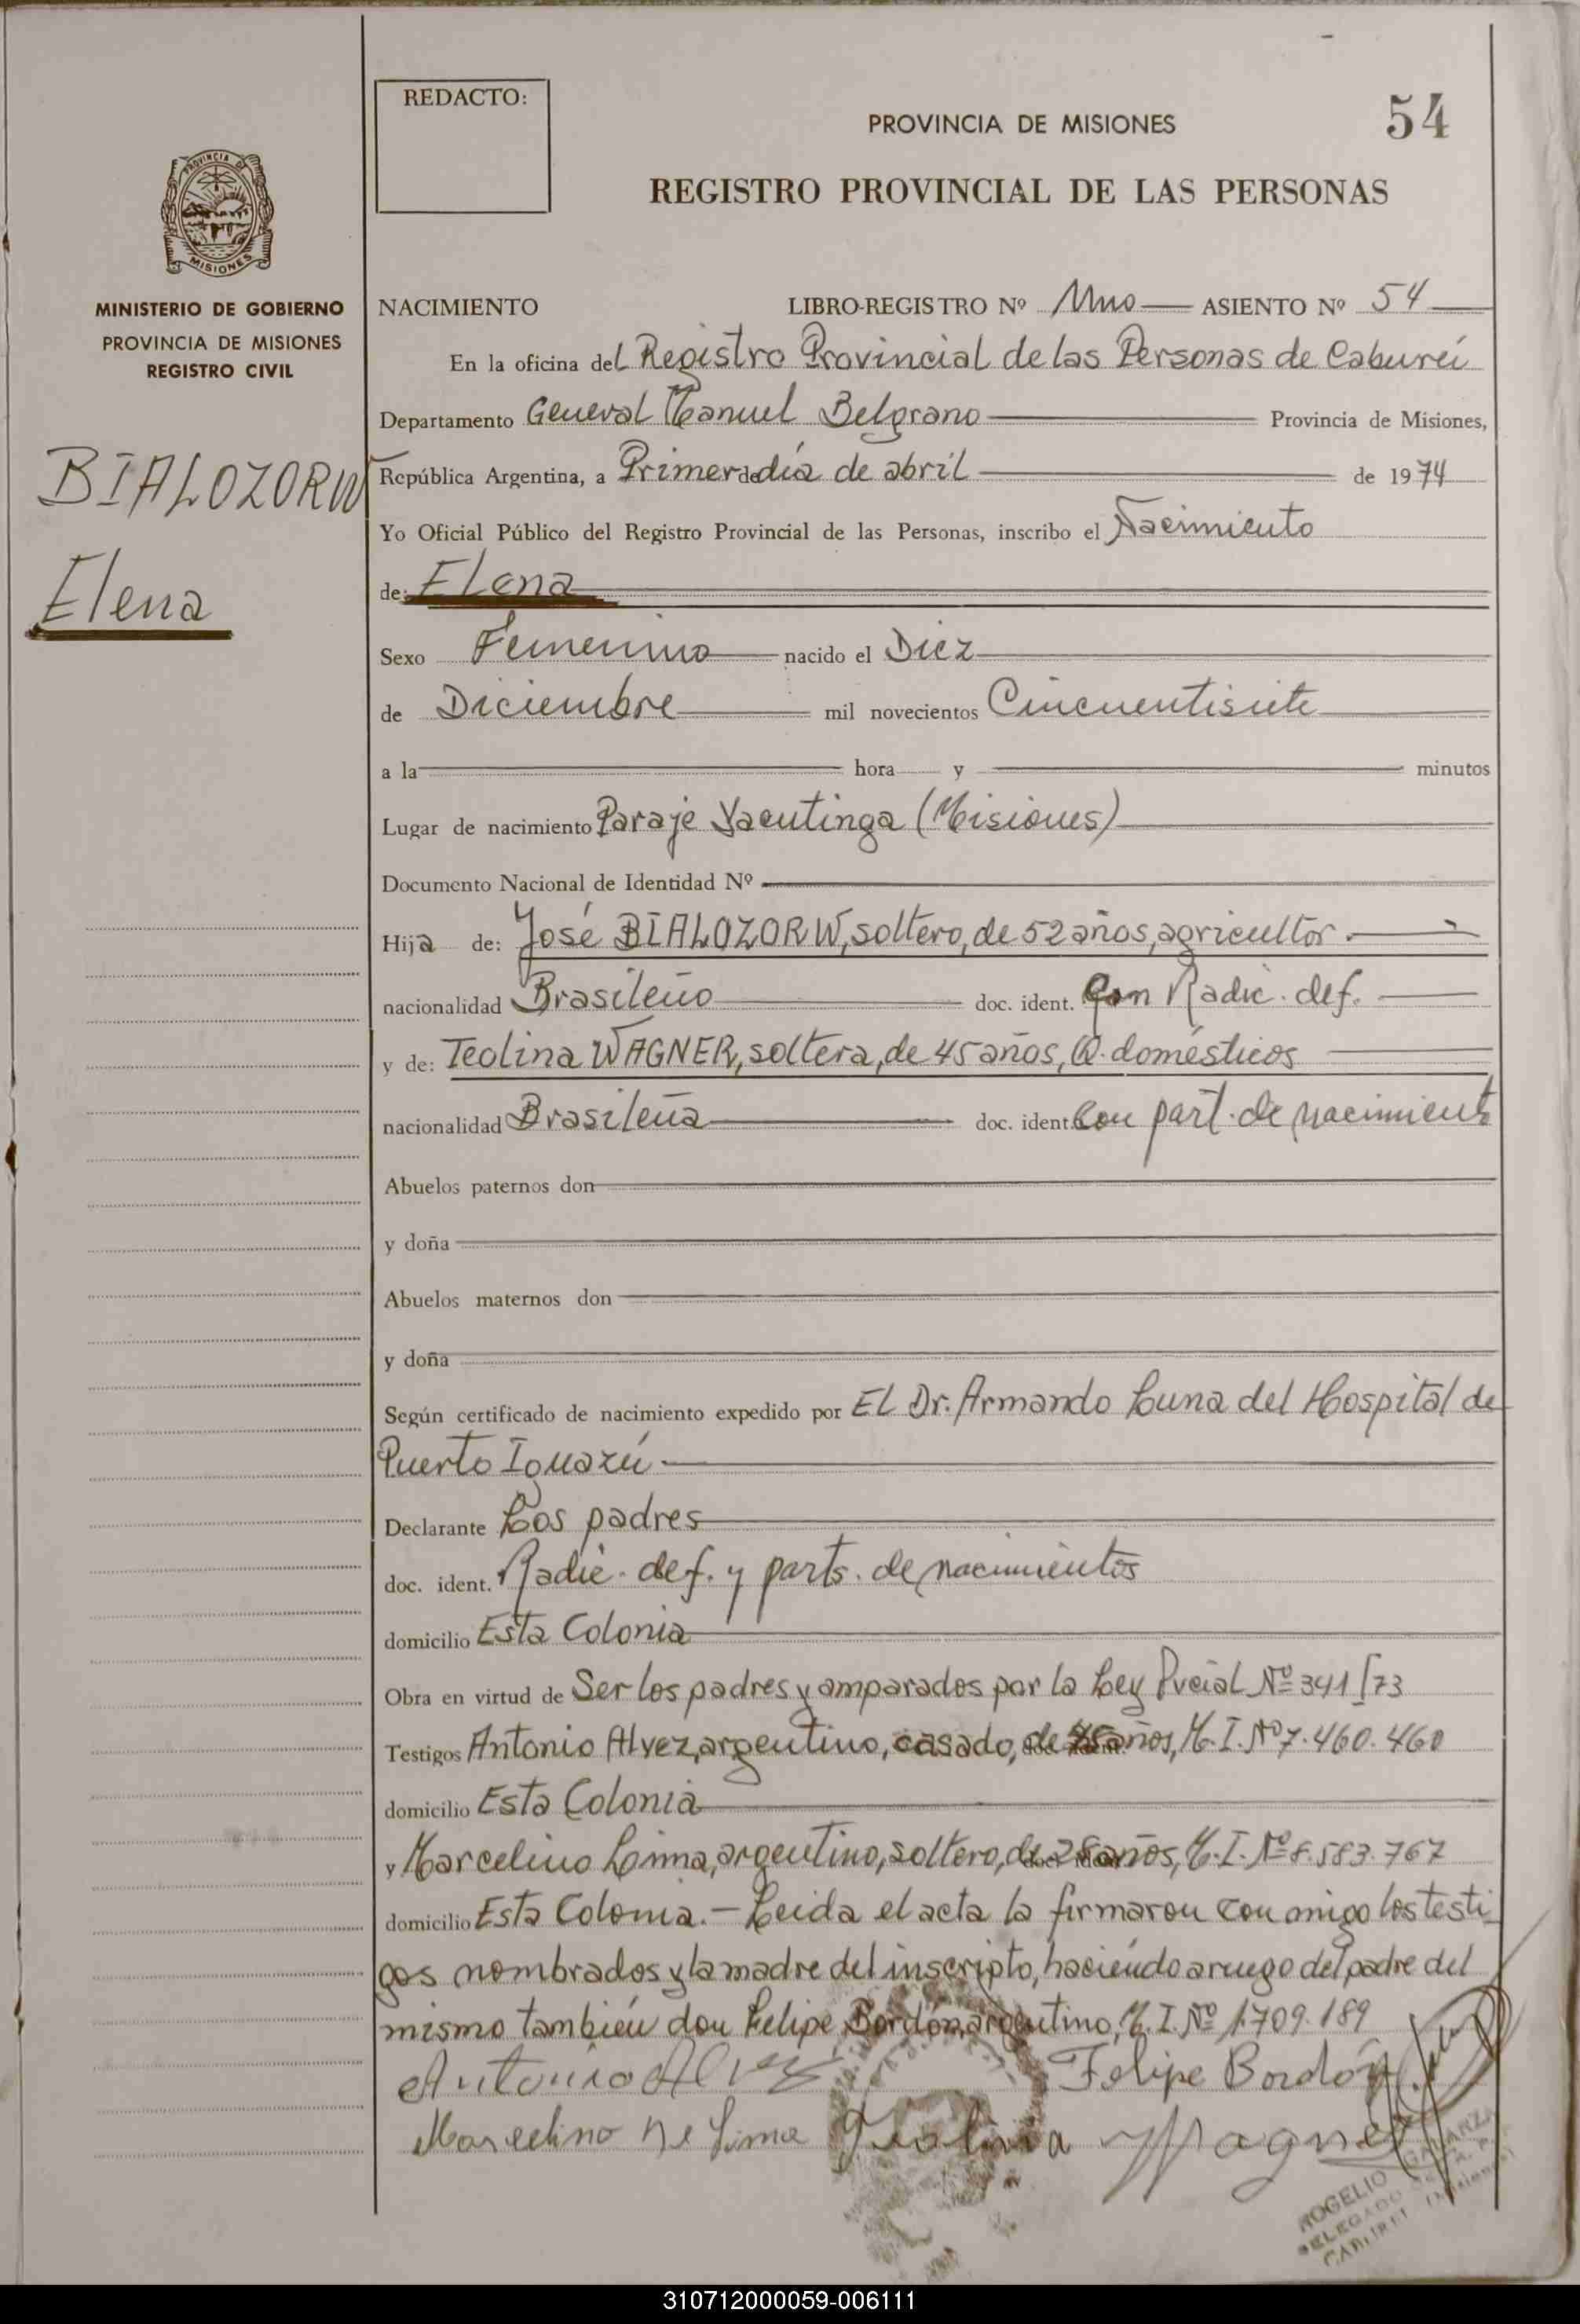 REDACTO:
PROVINCIA DE MISIONES
54
REGISTRO PROVINCIAL DE LAS PERSONAS
PROVINCIA DE
MISIONES
MINISTERIO DE GOBIERNO
PROVINCIA DE MISIONES
REGISTRO CIVIL
BIALOZORW
Elena
NACIMIENTO LIBRO-REGISTRO Nº Uno ASIENTO Nº 54
En la oficina del Registro Provincial de las Personas de Cabureí
Departamento General Manuel Belgrano Provincia de Misiones,
República Argentina, a Primer día de abril de 1974
Yo Oficial Público del Registro Provincial de las Personas, inscribo el Nacimiento
de: Elena
Sexo Femenino nacido el Diez
de Diciembre mil novecientos Cincuentisiete
a la hora y minutos
Lugar de nacimiento Paraje Yacutinga (Misiones)
Documento Nacional de Identidad Nº
Hija de: José BIALOZORW, soltero, de 52 años, agricultor.
nacionalidad Brasileño doc. ident. Con Radic. def.
y de: Teolina WAGNER, soltera, de 45 años, Q. domésticos
nacionalidad Brasileña doc. ident. Con part. de nacimiento
Abuelos paternos don
y doña
Abuelos maternos don
y doña
Según certificado de nacimiento expedido por El Dr. Armando Luna del Hospital de
Puerto Iguazú.
Declarante Los padres
doc. ident. Radic. def. y parts. de nacimientos
domicilio Esta Colonia
Obra en virtud de Ser los padres y amparados por la Ley Pvcial Nº 341/73
Testigos Antonio Alvez, argentino, casado, de años, M.I. Nº 7.460.460
domicilio Esta Colonia
y Marcelino Lima, argentino, soltero, de 28 años, M.I. Nº 8.583.767
domicilio Esta Colonia.- Leida el acta la firmaron con migo los testi
gos nombrados y la madre del inscripto, haciéndo a ruego del padre del
mismo también don Felipe Bordón, argentino, M.I. Nº 1.709.189
Antonio Alvez Felipe Bordón
Marcelino de Lima Teolina Wagner
ROGELIO GALARZA
DELEGADO
CABUREI (Misiones)
310712000059-006111